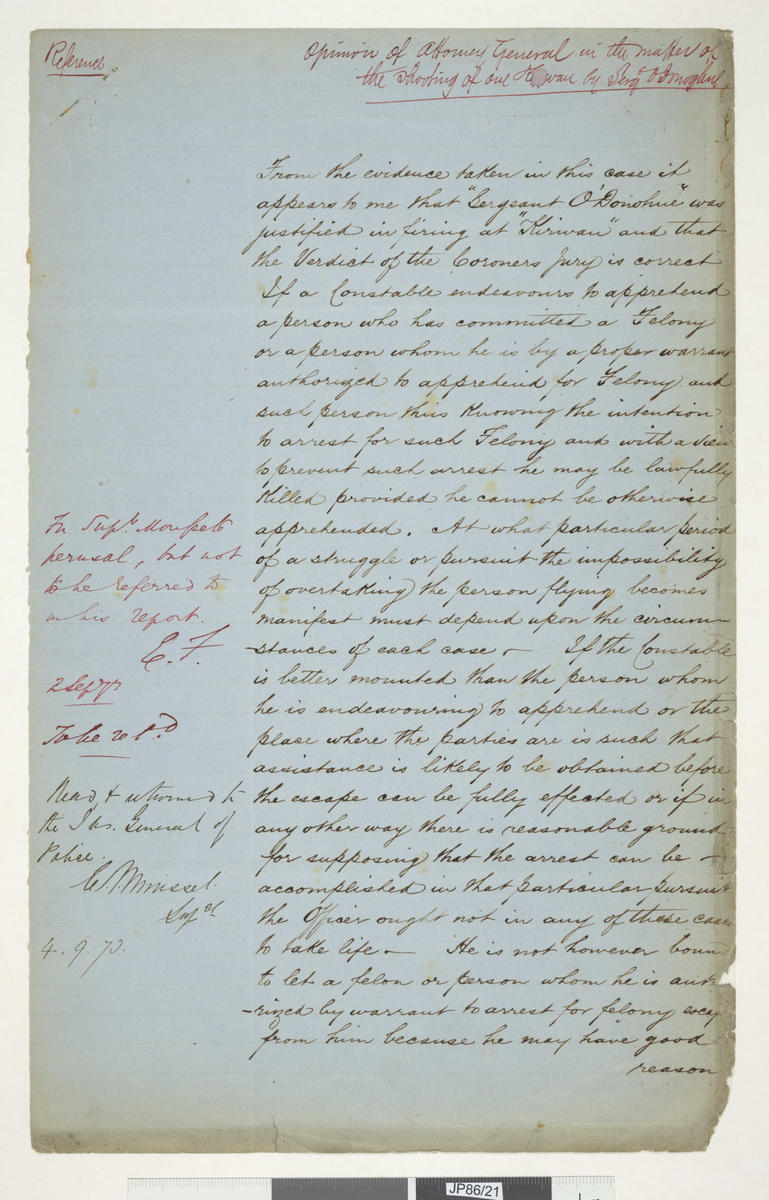 Reference
Opinion of Attorney General in the matter of
the shooting of one Kirwan by Sergt O'Donoghue
From the evidence taken in this case it
appears to me that "Sergeant O'Donohue" was
justified in firing at "Kirwan" and that
the Verdict of the Coroners Jury is correct
If a Constable endeavours to apprehend
a person who has committed a Felony
or a person whom he is by a proper warrant
authorized to apprehend for Felony and
such person thus Knowing the intention
to arrest for such Felony and with a view
to prevent such arrest he may be lawfully
Killed provided he cannot be otherwise
apprehended. At what particular period
of a struggle or pursuit the impossibility
of overtaking the person flying becomes
manifest must depend upon the circum
-stances of each case - If the Constable
is better mounted than the person whom
he is endeavouring to apprehend or the
place where the parties are is such that
assistance is likely to be obtained before
the escape can be fully effected or if in
any other way there is reasonable ground
for supposing that the arrest can be -
accomplished in that particular pursuit
the Officer ought not in any of these cases
to take life - He is not however boun
to let a felon or person whom he is auth
-rized by warrant to arrest for felony escap
from him because he may have good
reason
For Supt. 
perusal, but not
to be referred to
in his report.
E. F.
2 Sep
To be retd
Read & returned to
the Ins. General of
Police.
Supt
4. 9. 7
JP86/21